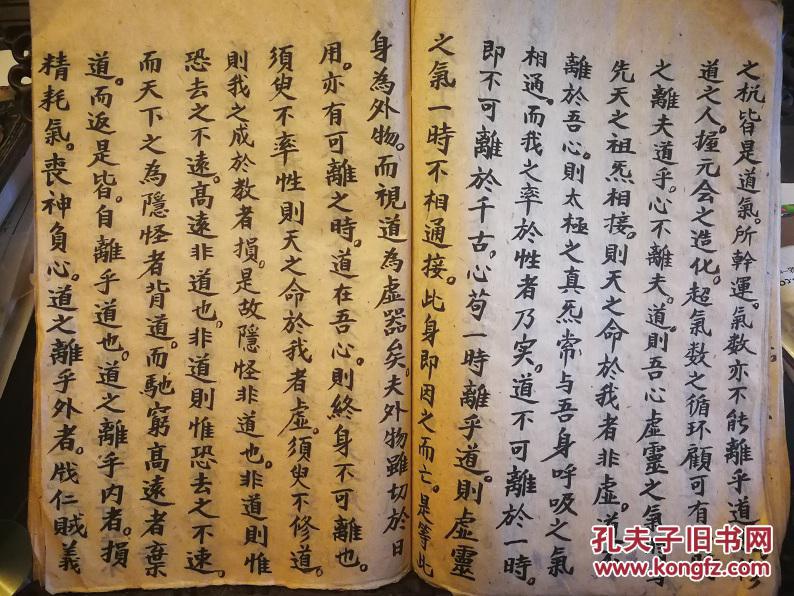 之杭皆是道氣。所幹運。氣数亦不能離乎道
道之人。握元会之造化。超氣数之循环顧可有
之離夫道乎。心不離夫。道。則吾心虛靈之氣
先天之祖炁相接。則天之命於我者非虛。道
離於吾心。則太極之真炁常与吾身呼吸之氣
相通。而我之率於性者乃实。道不可離於一時。
即不可離於千古。心苟一時離乎道。則虛靈
之氣一時不相通接。此身即因之而亡。是等此
身為外物。而視道為虛器矣。夫外物雖切於日
用。亦有可離之時。道在吾心。則終身不可離也。
須臾不率性則天之命於我者虛。須臾不修道。
則我之成於教者損。是故隱怪非道也。非道則惟
恐去之不速。高遠非道也。非道則惟恐去之不速。
而天下之為隱怪者背道。而馳窮高遠者棄
道。而返是皆。自離乎道也。道之離乎内者。損
精耗氣。喪神負心。道之離乎外者。戕仁賊義
孔夫子旧书网
www.kongfz.com